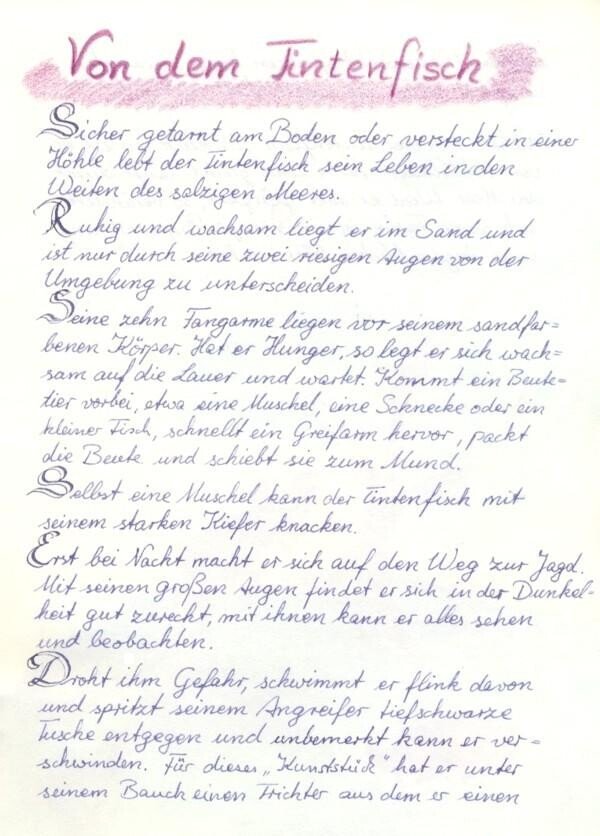 Von dem Tintenfisch
Sicher getarnt am Boden oder versteckt in einer
Höhle lebt der Tintenfisch sein Leben in den
Weiten des salzigen Meeres.
Ruhig und wachsam liegt er im Sand und
ist nur durch seine zwei riesigen Augen von der
Umgebung zu unterscheiden.
Seine zehn Fangarme liegen vor seinem sandfar=
benen Körper. Hat er Hunger, so legt er sich wach=
sam auf die Lauer und wartet. Kommt ein Beute=
tier vorbei, etwa eine Muschel, eine Schnecke oder ein
kleiner Fisch, schnellt ein Greifarm hervor, packt
die Beute und schiebt sie zum Mund.
Selbst eine Muschel kann der Tintenfisch mit
seinem starken Kiefer knacken.
Erst bei Nacht macht er sich auf den Weg zur Jagd.
Mit seinen großen Augen findet er sich in der Dunkel=
heit gut zurecht, mit ihnen kann er alles sehen
und beobachten.
Droht ihm Gefahr, schwimmt er flink davon
und spritzt seinem Angreifer tiefschwarze
Tusche entgegen und unbemerkt kann er ver=
schwinden. Für dieses „Kunststück" hat er unter
seinem Bauch einen Trichter aus dem er einen